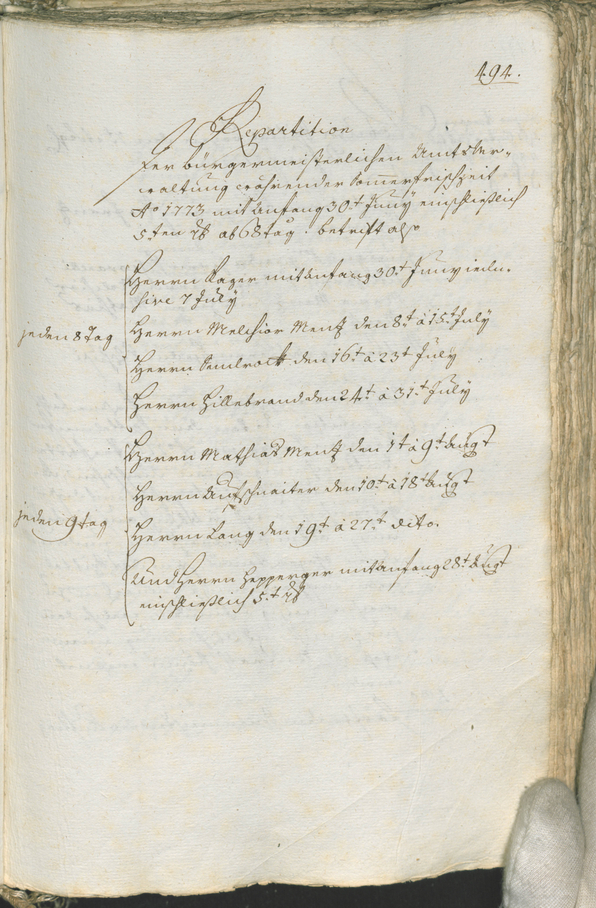 494.
Repartition
Der bürgermeisterlichen Amts Ver-
waltung während der Sommerfrischzeit
Ao 1773 mit anfang 30t Juny einschließlich
5ten 7b ab 68 tag. betrift also
Herrn Kager mit anfang 30t Juny inclu-
sive 7 July
jeden 8 Tag
Herrn Melchior Menz den 8t à 15t July
Herrn Semlrock den 16t à 23t July
Herrn Hillebrand den 24t à 31t July
Herrn Mathias Menz den 1t à 9t Augt
Herrn Aufschnaiter den 10t à 18t Augt
jeden 9 tag
Herrn Lang den 19t à 27t dito.
Und Herrn Hepperger mit anfang 28t Augt
einschließlich 5t 7b